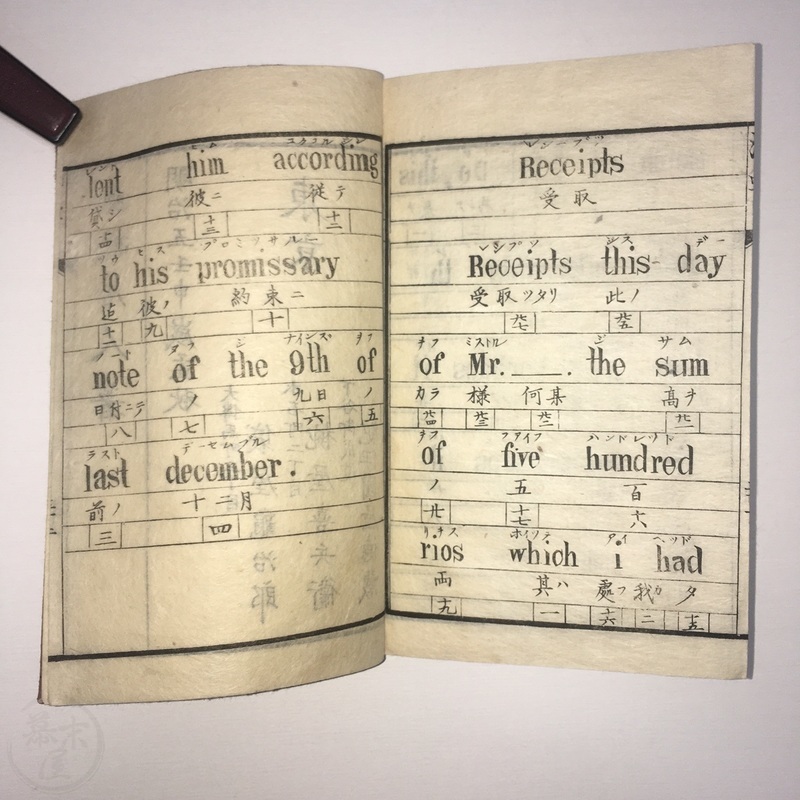 レシープツ
Receipts
受取
レシプツ シス デー
Receipts this day
受取ツタリ 此ノ
廿七 廿五
ヲフ ミストル ジ サム
of Mr. ____. the sum
カラ 様 何某 高ヲ
廿四 廿三 廿二 廿一
ヲフ ファイフ ハンドレツド
of five hundred
ノ 五 百
廿 十七 十八
リヲス ホイツチ アイ ヘッド
rios which i had
両 其ハ 處フ 我カ タ
十九 一 十六 二 十五
レント ヒム エクヲルジン
lent him according
貸シ 彼ニ 從テ
十四 十三 十二
ツウ ヒス プロミッサルー
to his promissary
迠 彼ノ 約束ニ
十一 九 十
ノート ヲフ ジ ナインス ヲフ
note of the 9th of
日付ニテ ノ 九日 ノ
八 七 六 五
ラスト デーセムブル
last december.
前ノ 十二月
三 四
幕末屋